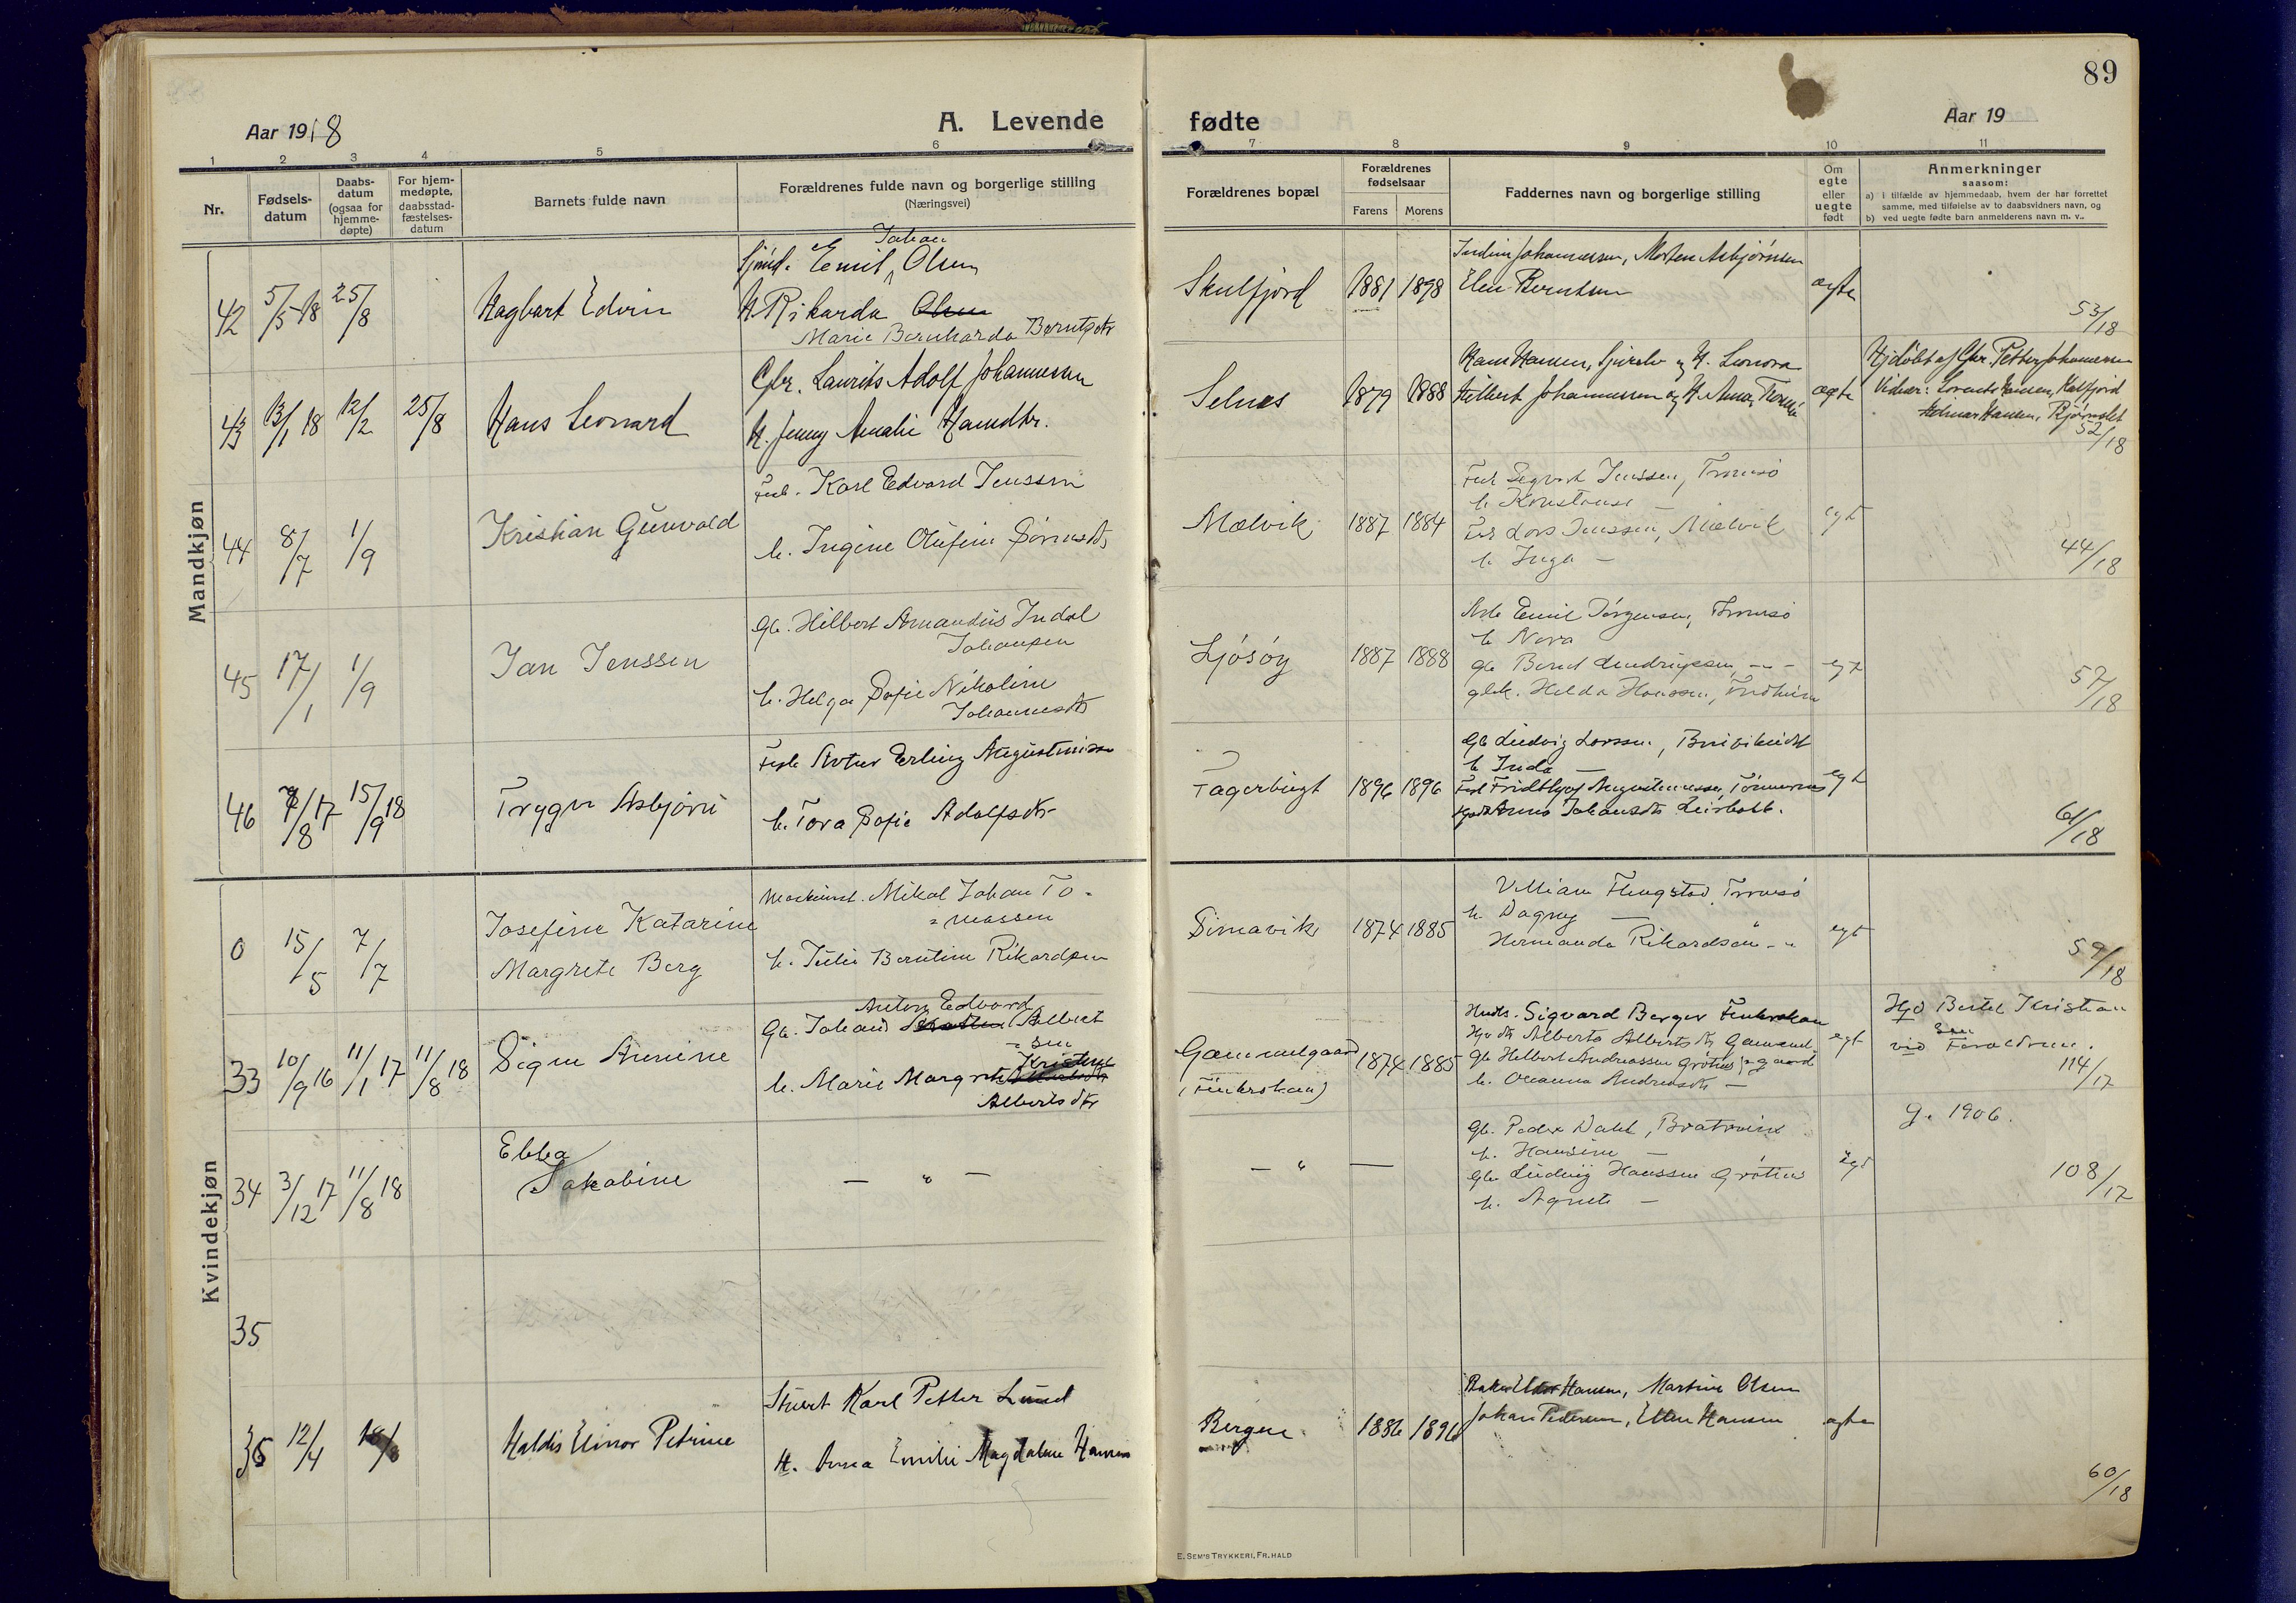 89
Aar 1918
A. Levende fødte
Aar 19
1 2 3 4 5 6 7 8 9 10 11
Nr.
Fødsels-
datum
Daabs-
datum
(ogsaa for
hjemme-
døpte)
For hjem-
medøpte,
daabsstad-
fæstelses-
datum
Barnets fulde navn
Forældrenes fulde navn og borgerlige stilling
(Næringsvei)
Forældrenes bopæl
Forældrenes
fødselsaar
Farens Morens
Faddernes navn og borgerlige stilling
Om
egte
eller
uegte
født
Anmerkninger
saasom:
a) i tilfælde av hjemmedaab, hvem der har forrettet
samme, med tilføielse av to daabsvidners navn, og
b) ved uegte fødte barn anmelderens navn m. v..
Mandkjøn
42 5/5 18 25/8
Hagbart Edvin
Johan
Emil Olsen
H. Rikarda Olsen
Marie Bernharda Berntsdtr
Skulfjord 1881 1898
Johannessen, Morten Asbjørnsen
Elen Berntsen
ægte
53/18
43 13/1 18 12/2 25/8
Hans Leonard
Gbr. Laurits Adolf Johannessen
H. Jenny Amalie Hansdtr.
Selnes 1879 1888
Hans Hansen, og H. Leonora
Hilbert Johannessen og H. Anna,
ægte
Hjdøbt af Gbr. Petter Johannessen
Vidner: Lorents Hansen, Kalfjord
Helmer Hansen, Bjørnslet
52/18
44 8/7 1/9
Kristian Gunvald
Karl Edvard Jenssen
h. Ingine Olufine Sørensdtr
Mælvik 1887 1884
Sigvart Jenssen, Tromsø
h. Konstanse
Lars Jenssen, Mælvik
h. Inga —
egt
44/18
45 17/1 1/9
Jan Jenssen
Gb. Hilbert Amandus Indal
Johansen
h. Helga Sofie Nikoline
Johannesdtr
Ljøsøy 1887 1888
Emil Jørgensen, Tromsø
h. Nora
gb Bernt Hendriksen, —
Helda Hanssen,
egt
57/18
46 7/8 17 15/9 18
Trygve Asbjørn
Artur Erling Augustinissen
h. Tora Sofie Adolfsdtr
Fagerbugt 1896 1896
Gb Ludvig Larssen,
h Inda —
Fridthjof Augustinussen,
Anna Johansdtr
egt
61/18
Kvindekjøn
0 15/5 7/7
Josefine Katarine
Margrete Berg
Maskinist. Mikal Johan To-
= massen
h. Julie Berntine Rikardsen
Simavik 1874 1885
Villiam Flengstad, Tromsø
h. Dagny —
Hermanda Rikardsen
egt
59/18
33 10/9 16 11/1 17 11/8 18
Signe Annine
Anton Edvard
Gb. Johans Albert
= sen
Kristine
h. Marie Margrete
Albertsdtr
Gammelgaard
(Finkroken)
1874 1885
Sigvard Berger Finkroken
Alberta Albertsdtr Gammel-
Gb Hilbert Andreassen Grøtnes = gaard
h. Oleanna Andreasdtr —
egt
Hjd Bertel Kristian
sen
vid Forældrene.
114/17
34 3/12 17 11/8 18
Ebba
Jakobine
— " —
— " —
Gb. Peder Dahl,
h. Hansine —
Gb Ludvig Hanssen Grøtnes
h. Agnete —
egt
g. 1906.
108/17
35
36 12/4
Haldis Elinor Petrine
Stuert Karl Petter Lund
H. Anna Emilie Magdalene Hansen
Bergen 1886 1896
Hansen, Martine Olsen
Johan Pedersen, Ellen Hansen
ægte
60/18
E. SEM'S TRYKKERI, FR.HALD